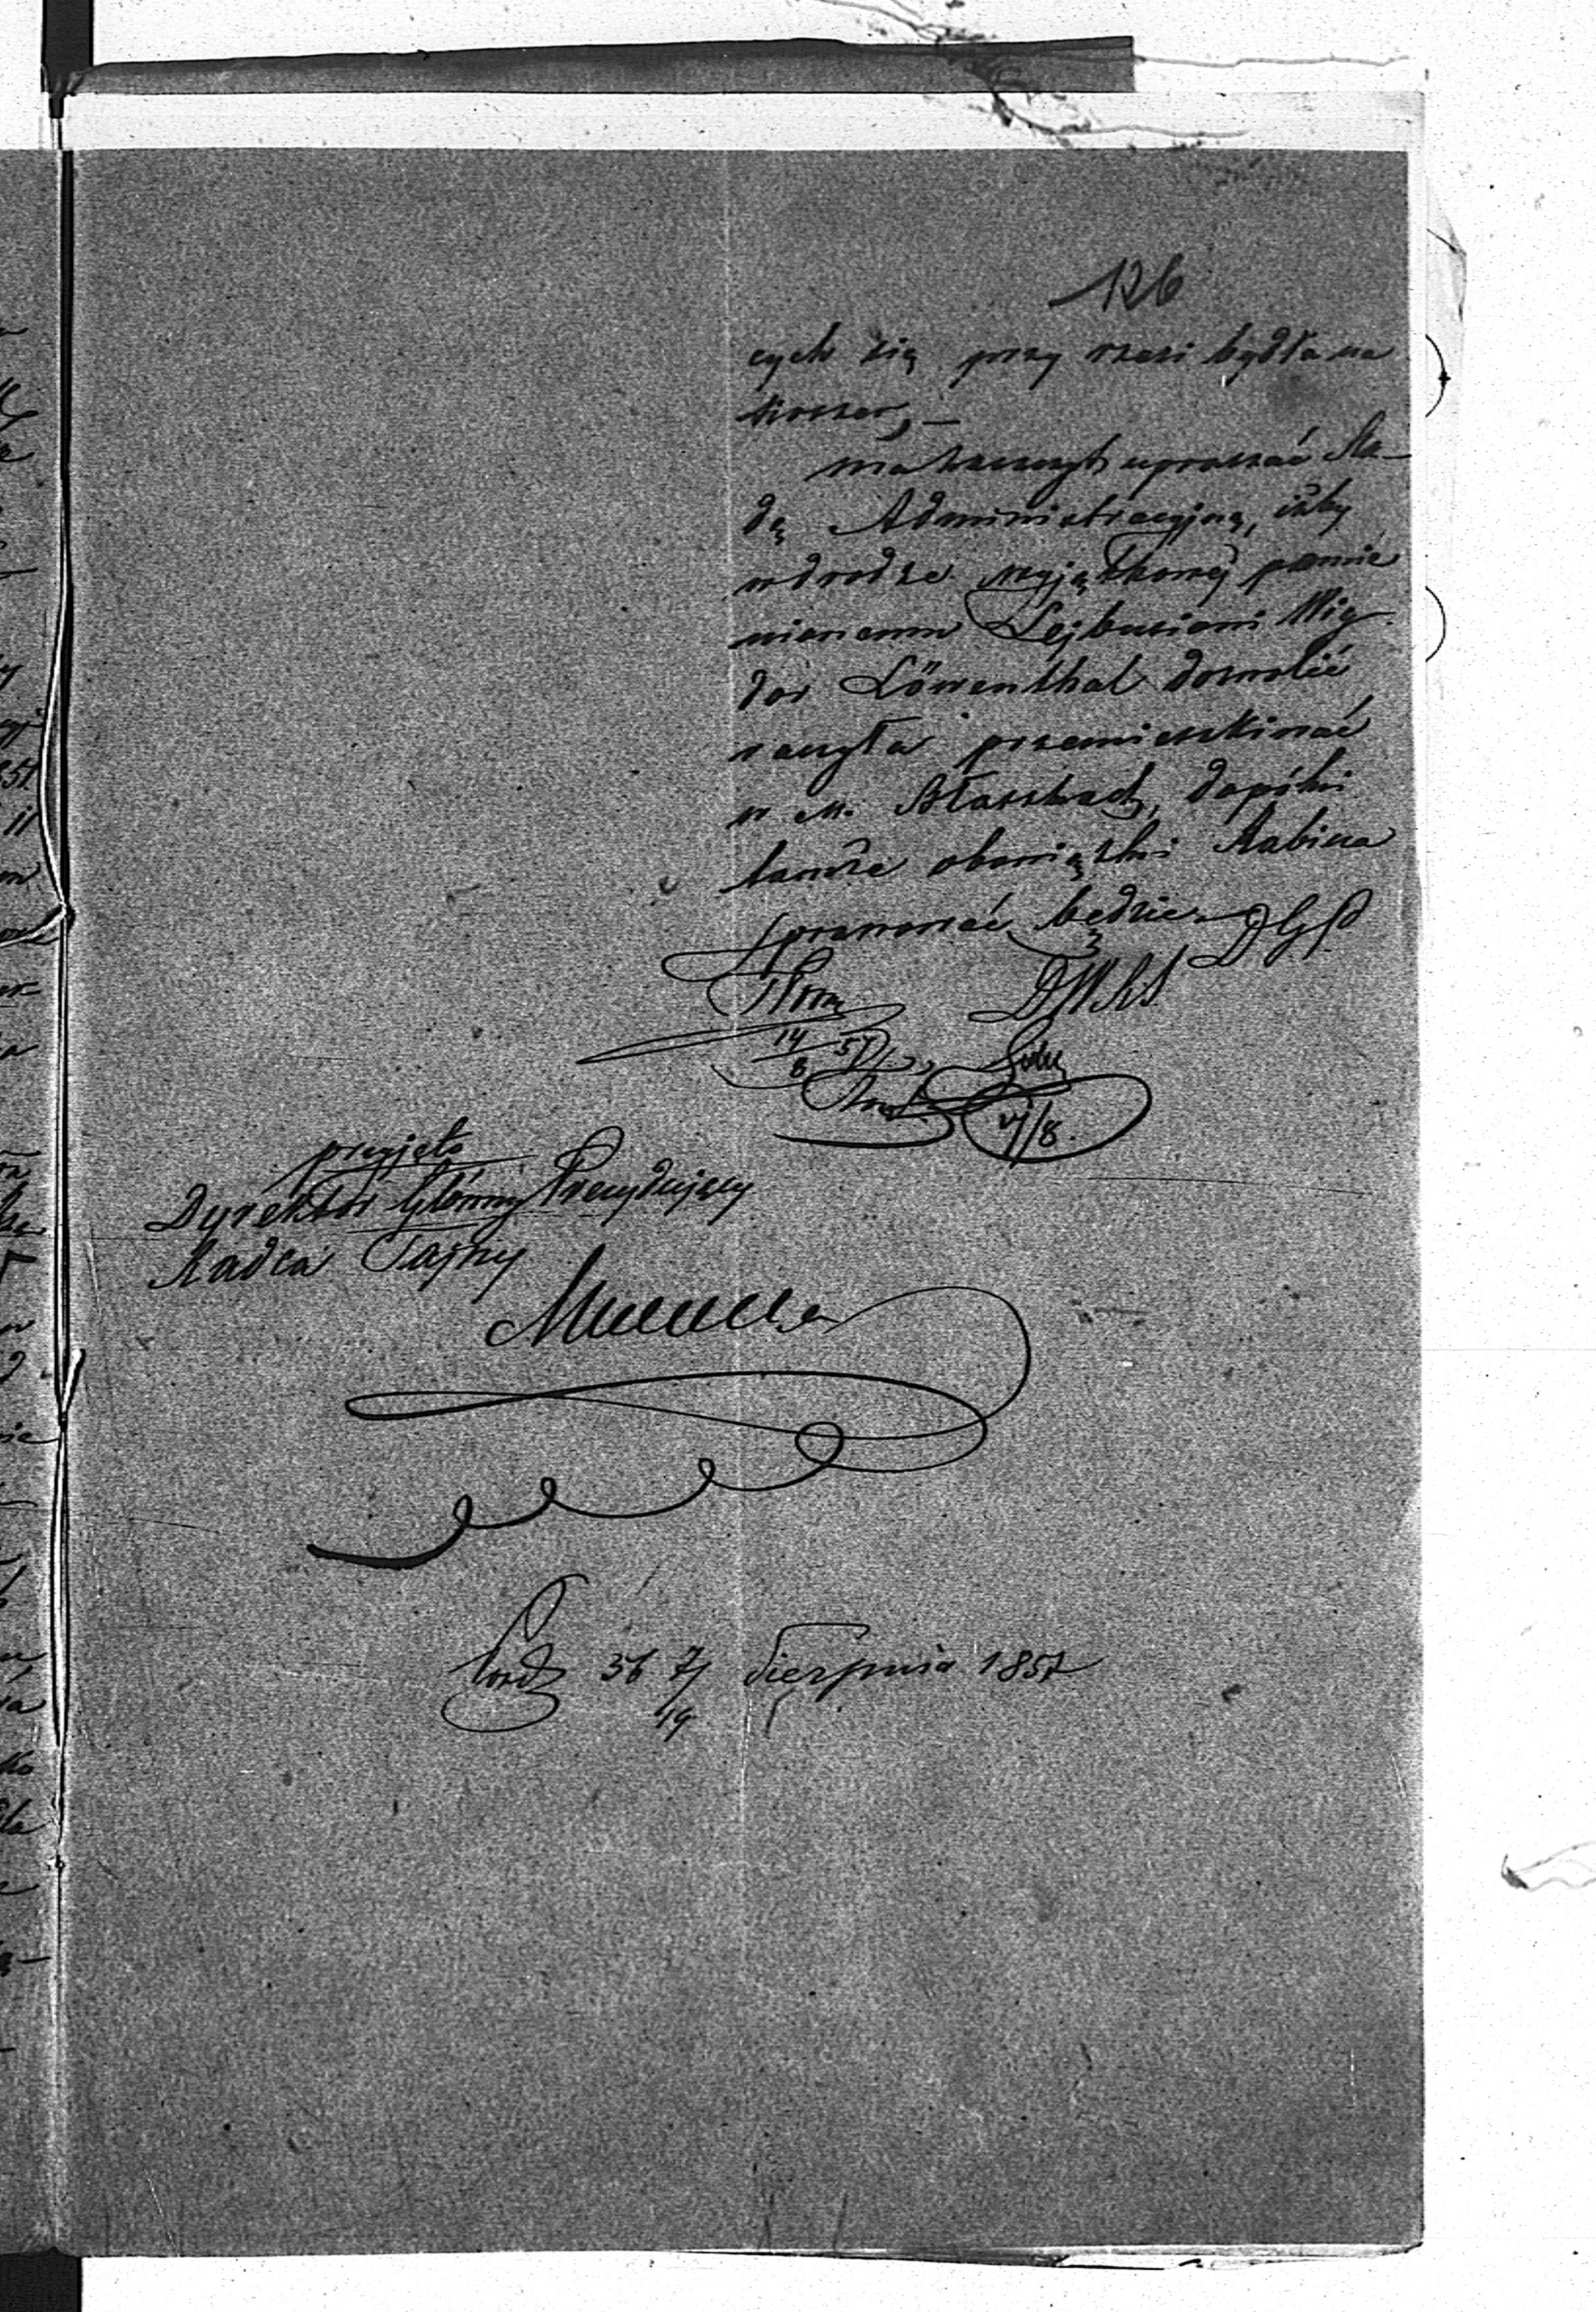 126
cych się przy rzezi bydła na
koszer, —
ma zaszczyt upraszać Ra-
dę Administracyjną, iżby
w drodze wyjątkowej pomie
nionemu Lejbusiowi Wig-
dor Löwenthal dozwolić
raczyła przemieszkiwać
w m. Błaszkach, dopóki
tamże obowiązki Rabina
sprawować będzie. DGP
DWRS
14/8 57
17/8.
przyjęto
Dyrektor Główny Prezydujący
Radca Tajny
36 7/19 Sierpnia 1857